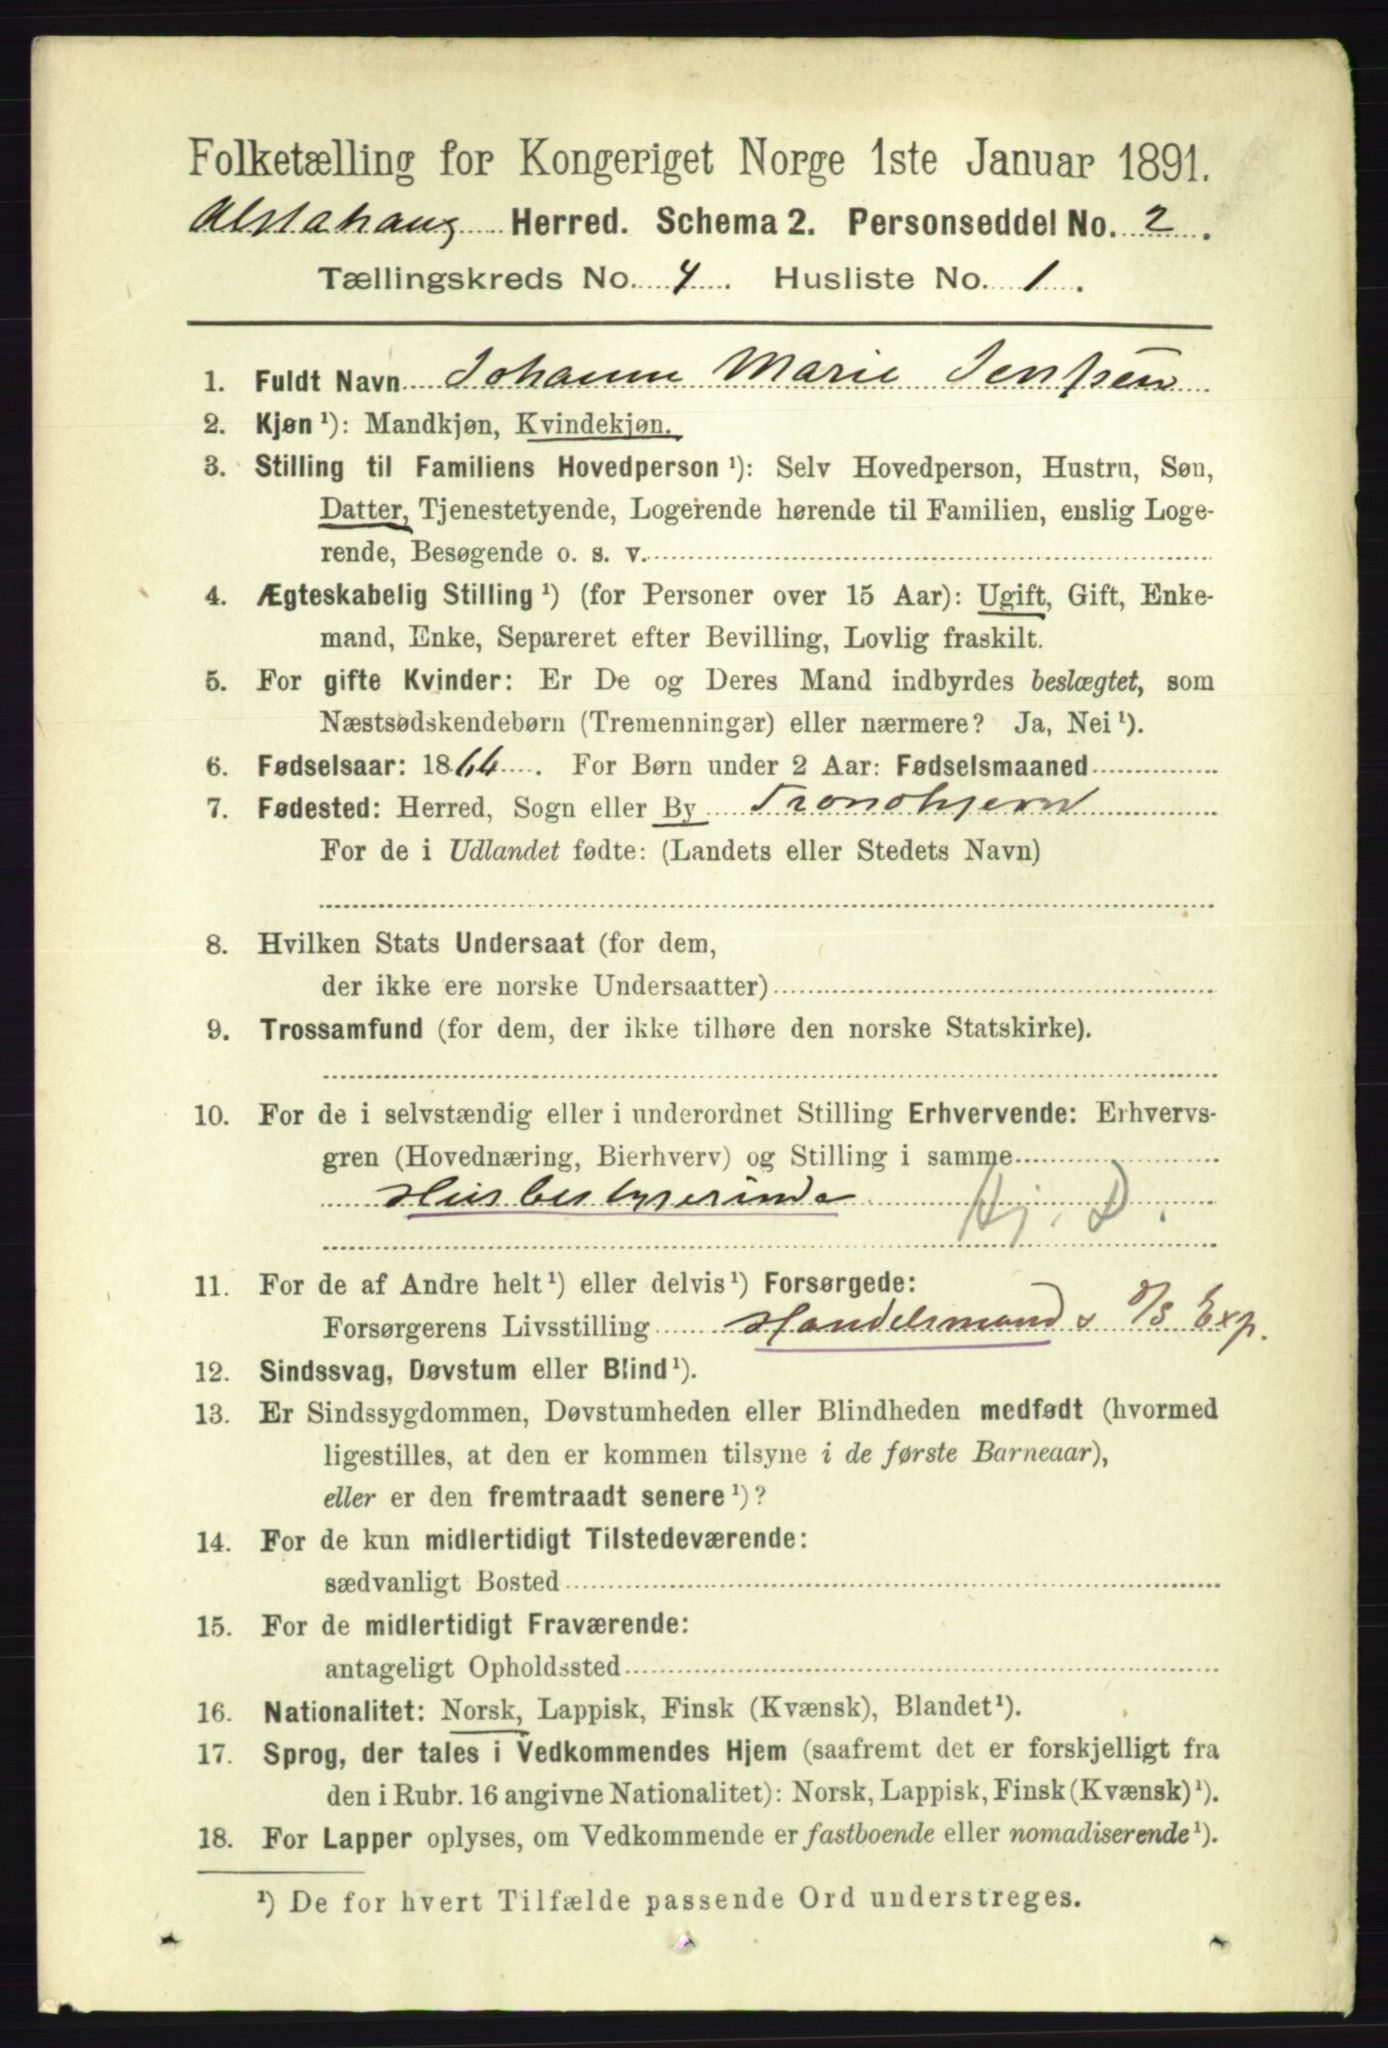 Folketælling for Kongeriget Norge 1ste Januar 1891.
Alstahaug Herred. Schema 2. Personseddel No. 2.
Tællingskreds No. 4. Husliste No. 1.
1. Fuldt Navn Johanne Marie Jenssen
2. Kjøn ¹): Mandkjøn, Kvindekjøn.
3. Stilling til Familiens Hovedperson ¹): Selv Hovedperson, Hustru, Søn,
Datter, Tjenestetyende, Logerende hørende til Familien, enslig Loge-
rende, Besøgende o. s. v.
4. Ægteskabelig Stilling ¹) (for Personer over 15 Aar): Ugift, Gift, Enke-
mand, Enke, Separeret efter Bevilling, Lovlig fraskilt.
5. For gifte Kvinder: Er De og Deres Mand indbyrdes beslægtet, som
Næstsødskendebørn (Tremenninger) eller nærmere? Ja, Nei ¹).
6. Fødselsaar: 1866. For Børn under 2 Aar: Fødselsmaaned
7. Fødested: Herred, Sogn eller By Trondhjem
For de i Udlandet fødte: (Landets eller Stedets Navn)
8. Hvilken Stats Undersaat (for dem,
der ikke ere norske Undersaatter)
9. Trossamfund (for dem, der ikke tilhøre den norske Statskirke).
10. For de i selvstændig eller i underordnet Stilling Erhvervende: Erhvervs-
gren (Hovednæring, Bierhverv) og Stilling i samme
Husbestyrerinde Hj. D.
11. For de af Andre helt ¹) eller delvis ¹) Forsørgede:
Forsørgerens Livsstilling Handelsmand & D/S Exp.
12. Sindssvag, Døvstum eller Blind ¹).
13. Er Sindssygdommen, Døvstumheden eller Blindheden medfødt (hvormed
ligestilles, at den er kommen tilsyne i de første Barneaar),
eller er den fremtraadt senere ¹)?
14. For de kun midlertidigt Tilstedeværende:
sædvanligt Bosted
15. For de midlertidigt Fraværende:
antageligt Opholdssted
16. Nationalitet: Norsk, Lappisk, Finsk (Kvænsk), Blandet ¹).
17. Sprog, der tales i Vedkommendes Hjem (saafremt det er forskjelligt fra
den i Rubr. 16 angivne Nationalitet): Norsk, Lappisk, Finsk (Kvænsk) ¹).
18. For Lapper oplyses, om Vedkommende er fastboende eller nomadiserende ¹).
¹) De for hvert Tilfælde passende Ord understreges.